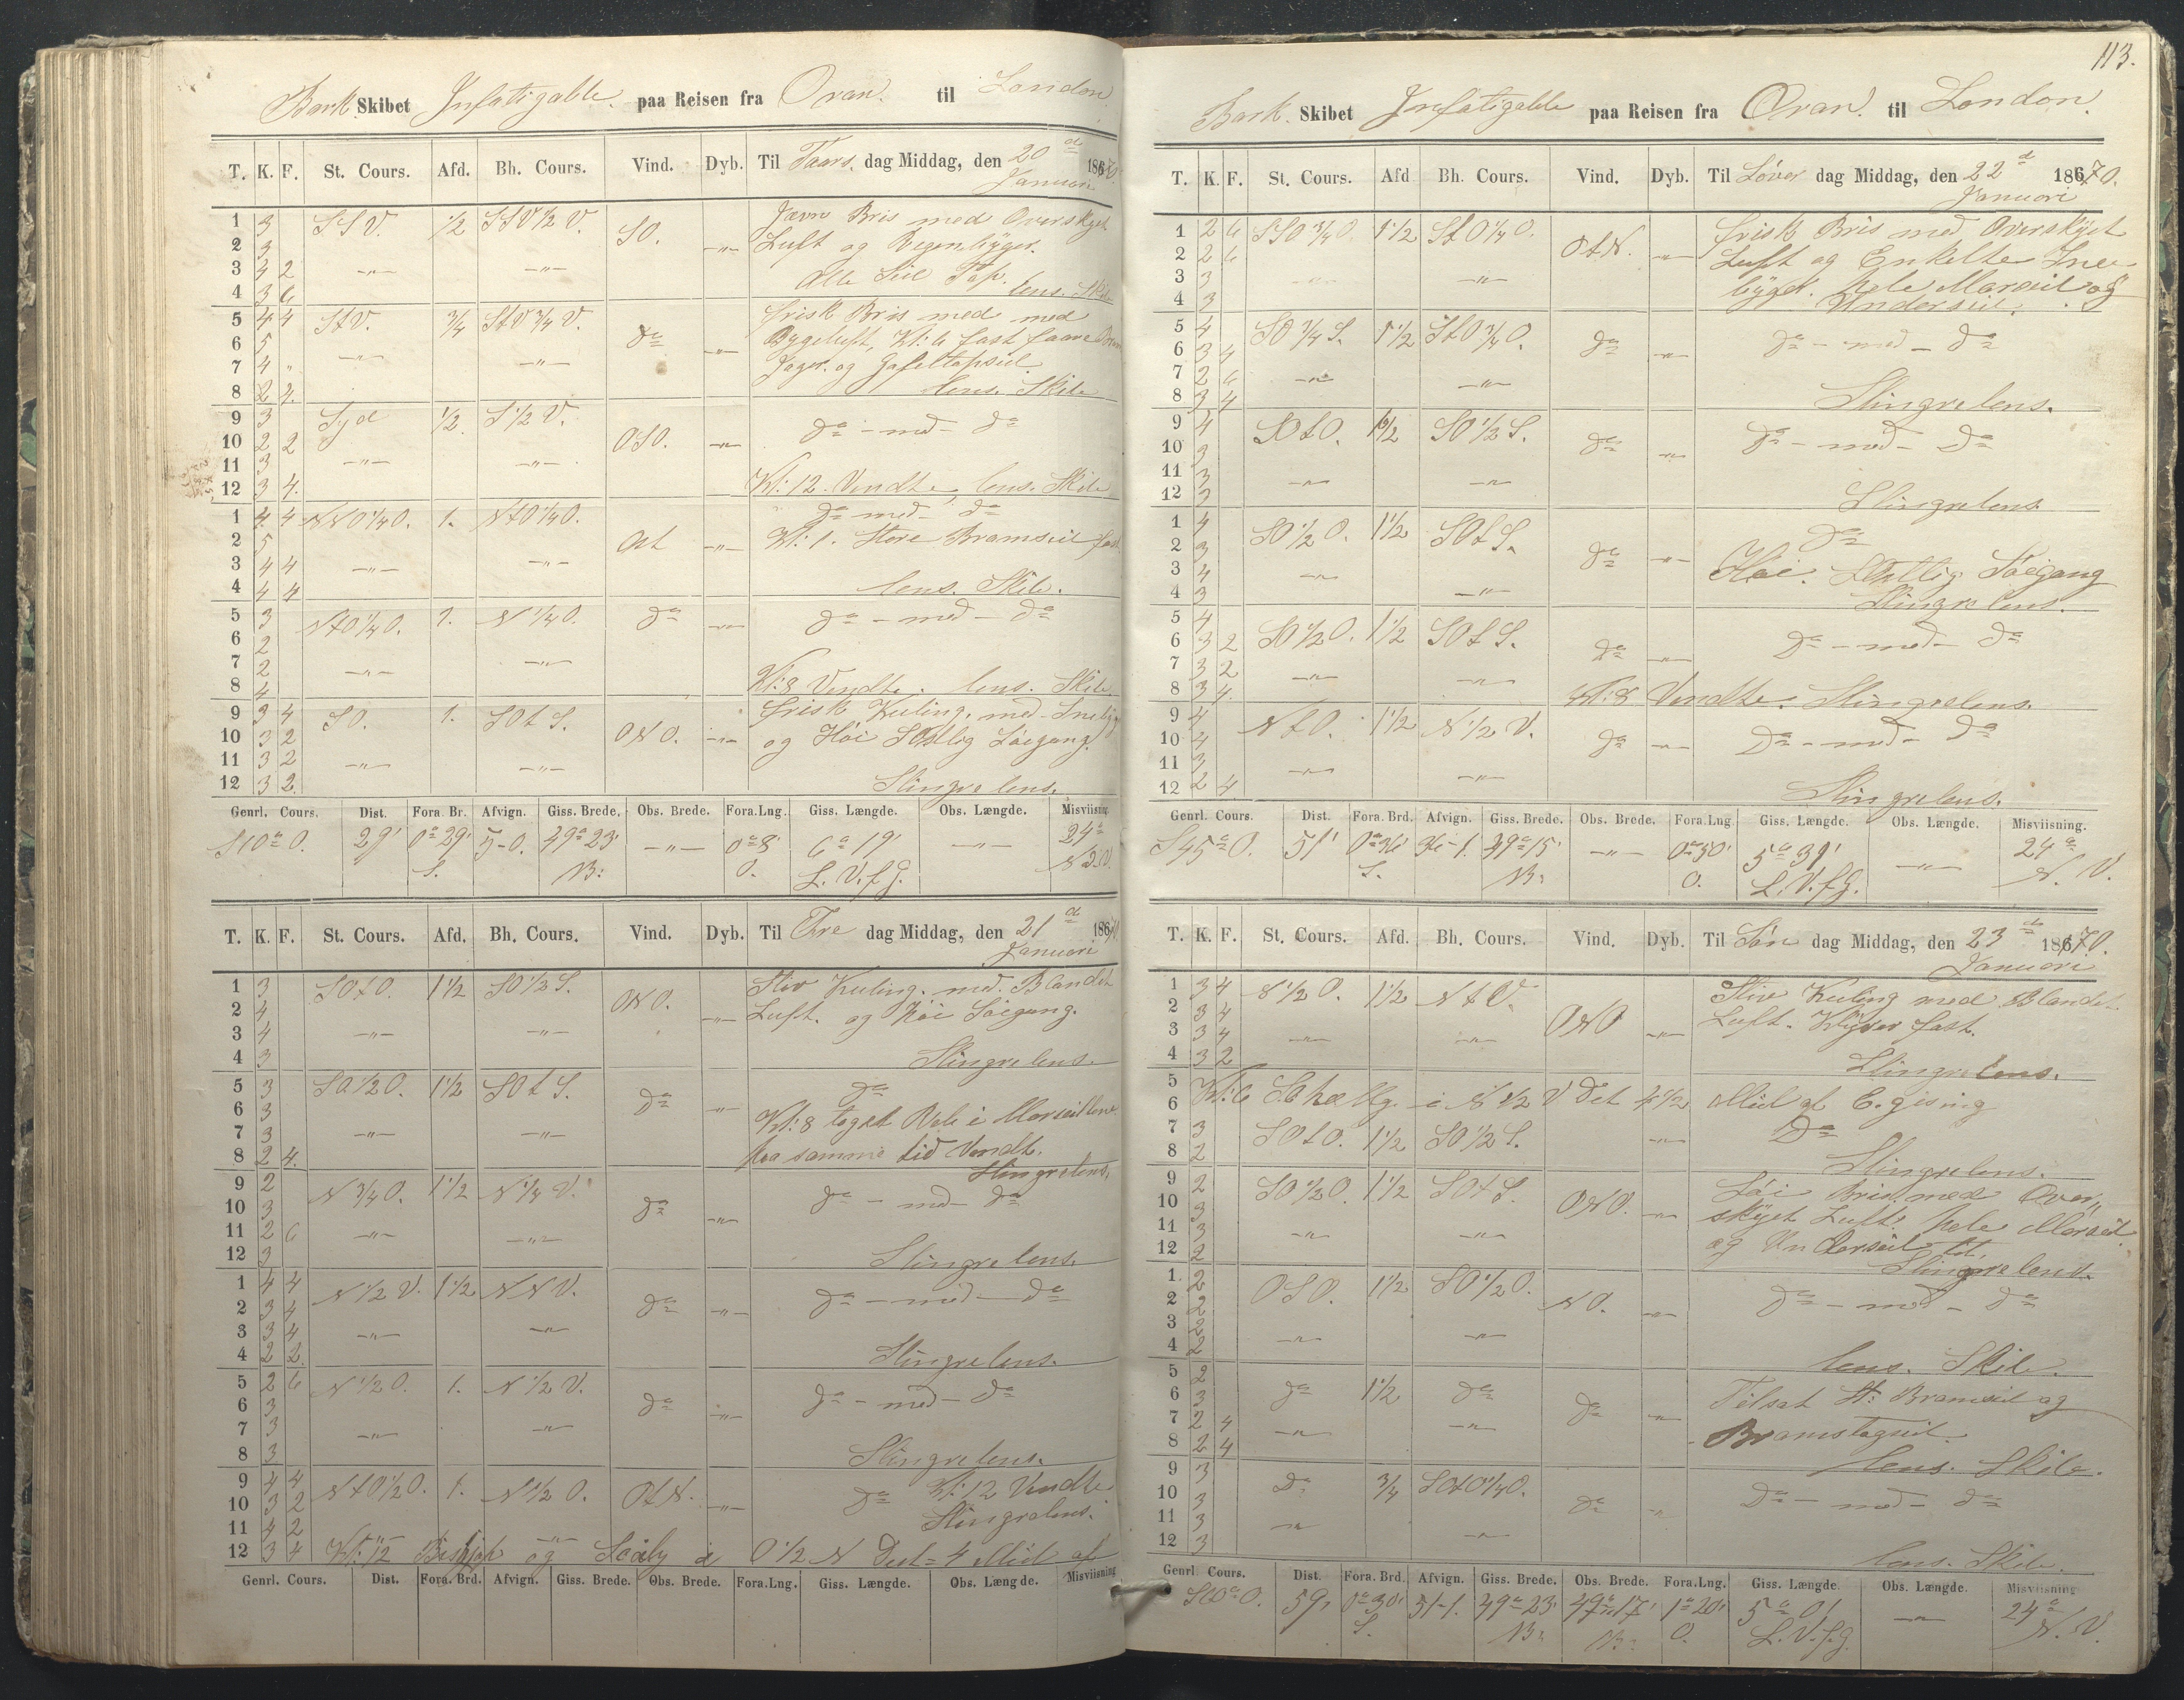 Bark Skibet Infatigable. paa Reisen fra Oran. til London
T. K. F. St. Cours. Afd. Bh. Cours. Vind. Dyb. Til Taars. dag Middag, den 20 d Januari 1870.
1 3 SSV. 1/2 SSV 1/2 V. SO. -"- Jævn Bris med Overskyet
2 3 Luft og Regenbyger.
3 4 2 -"- -"- Alle Seil Top.
4 3 6 lens. Skib
5 4 4 StV. 3/4 StV 3/4 V. do -"- frisk Bris med med
6 5 Bygeluft, Kl: 6 fast faare Bram
7 4 " -"- -"- Jager. og Gafeltopseil.
8 2 4. lens. Skib
9 3 Syd 1/2 S 1/2 V. OSO. -"- do - med - do
10 2 2
11 3 -"- -"-
12 3 4. Kl: 12 Vendte, lens. Skib
1 4 4 NNO 1/4 O. 1. NtO 1/4 O. Ost -"- do - med - do
2 5 Kl: 1. Store Bramseil fast
3 4 4 -"- -"-
4 4 4 lens. Skib.
5 3 NtO 1/4 O. 1. N 1/4 O. do -"- do - med - do
6 2
7 2 -"- -"-
8 4 Kl: 8 Vendte. lens. Skib.
9 3 4 SO. 1. SOt S. ONO. -"- frisk Kuling. med Snebyg
10 3 2 og Höi SOstlig Söegang.
11 3 2 -"- -"-
12 3 2. Slingrelens.
Genrl. Cours. Dist. Fora Br. Afvign. Giss. Brede. Obs. Brede. Fora.Lng. Giss. Længde. Obs. Længde. Misviisning
S10°O. 29' 0°29' 5-0. 49°23' -"- 0°8' 6°19' -"- 24°
S. N: O. L. V. f G. N V.
T. K. F. St. Cours. Afd. Bh. Cours. Vind. Dyb. Til Fre dag Middag, den 21 d Januari 1870.
1 3 SOtO. 1 1/2 SO 1/2 S. ONO. -"- Stiv Kuling. med. Blandet
2 4 Luft. og Höi Söegang.
3 4 -"- -"-
4 3 Slingrelens.
5 3 SO 1/2 O. 1 1/2 SOt S. do -"- do
6 3 Kl: 8 taget Reb i Marseillene
7 3 -"- -"- paa samme tid Vendt.
8 2 4. Slingrelens.
9 2 N 3/4 O. 1 1/2 N 1/4 V. do -"- do - med - do
10 3
11 2 6 -"- -"-
12 3 Slingrelens.
1 4 4 N 1/2 V. 1 1/2 NNV. do -"- do - med - do
2 3 4
3 3 4 -"- -"-
4 2 2 Slingrelens.
5 2 6 N 1/2 O. 1. N 1/2 V. do -"- do - med - do
6 3
7 3 -"- -"-
8 3 Slingrelens.
9 4 4 NtO 1/2 O. 1. N 1/2 O. OtN. -"- do Kl: 12 Vendte
10 3 2 Slingrelens.
11 4 2
12 3 4 Kl: 12 og i O 1/2 N Dist= 4 Miil af
Genrl. Cours. Dist. Fora. Brd. Afvign. Giss. Brede. Obs. Brede. Fora.Lng. Giss. Længde. Obs. Længde. Misviisning
113.
Bark. Skibet Infatigable paa Reisen fra Oran. til London.
T. K. F. St. Cours. Afd Bh. Cours. Vind. Dyb. Til Löver dag Middag, den 22 d Januari 1870.
1 2 6 SSO 3/4 O. 1 1/2 StO 1/4 O. OtN. -"- frisk Bris med Overskyet
2 2 6 Luft og Enkelte Snee
3 3 -"- -"- byger. hele Marseil og
4 3 Underseil.
5 4 SO 3/4 S. 1 1/2 StO 3/4 O. do -"- do - med - do
6 3 4
7 2 6 -"- -"-
8 3 4 Slingrelens.
9 4 SOtO. 1 1/2 SO 1/2 S. do -"- do - med - do
10 3
11 3 -"- -"-
12 3 Slingrelens.
1 4 SO 1/2 O. 1 1/2 SOt S. do -"- do
2 3 Höi. Söegang
3 4 -"-
4 3 -"- Slingrelens.
5 4 SO 1/2 O. 1 1/2 SOt S. do -"- do - med - do
6 3 2
7 3 2 -"- -"-
8 3 4. Kl: 8 Vendte. Slingrelens.
9 4 NtO. 1 1/2 N 1/2 V. do -"- do - med - do
10 4
11 3 -"- -"-
12 2 4 Slingrelens.
Genrl. Cours. Dist. Fora. Brd. Afvign. Giss. Brede. Obs. Brede. Fora.Lng Giss. Længde. Obs. Længde. Misviisning.
S45°O. 51' 0°36' 36-1. 49°15' -"- 0°50' 5°31' -"- 24°
S. N: O. L. V. f G. N. V.
T. K. F. St. Cours. Afd. Bh. Cours. Vind. Dyb. Til Sön dag Middag, den 23 d Januari 1870.
1 3 4 N 1/2 O. 1 1/2 NtV. ONO -"- Stiv Kuling med Blandet
2 3 4 Luft. Klyver fast.
3 3 4 -"- -"-
4 3 2 Slingrelens.
5
6 Kl: 6 i N 1/2 V Dist 4 1/2 Miil af C. gising
7 3 SOtO. 1 1/2 SO 1/2 S. -"- do
8 2 Slingrelens.
9 2 SO 1/2 O. 1 1/2 SOt S. ONO. -"- Löi Bris med Over,,
10 3 skyet Luft. hele Marseil
11 3 -"- -"- og Underseil til.
12 2 Slingrelens.
1. 2 OSO. 1 1/2 SO 1/2 O. NO. -"- do - med - do
2 2
3 2 -"- -"-
4 2 lens. Skib.
5 2 do 1 1/2 do do -"- Tilsat St: Bramseil og
6 3
7 2 4 -"- -"- Bramstagseil.
8 2 4 lens. Skib.
9 3 do 3/4 SOtO 1/4 O. do -"- do - med - do
10 3
11 3 -"- -"-
12 3 lens. Skib.
Genrl Cours. Dist. Fora. Brd. Afvign. Giss. Brede. Obs. Brede. Fora.Lng. Giss. Længde. Obs. Længde. Misviisning
S60°O. 59' 0°30' 51-1. 49°23' 49°17' 1°20' 5°01' -"- 24°
S. N: N: O. L. V. f. G. N. V.